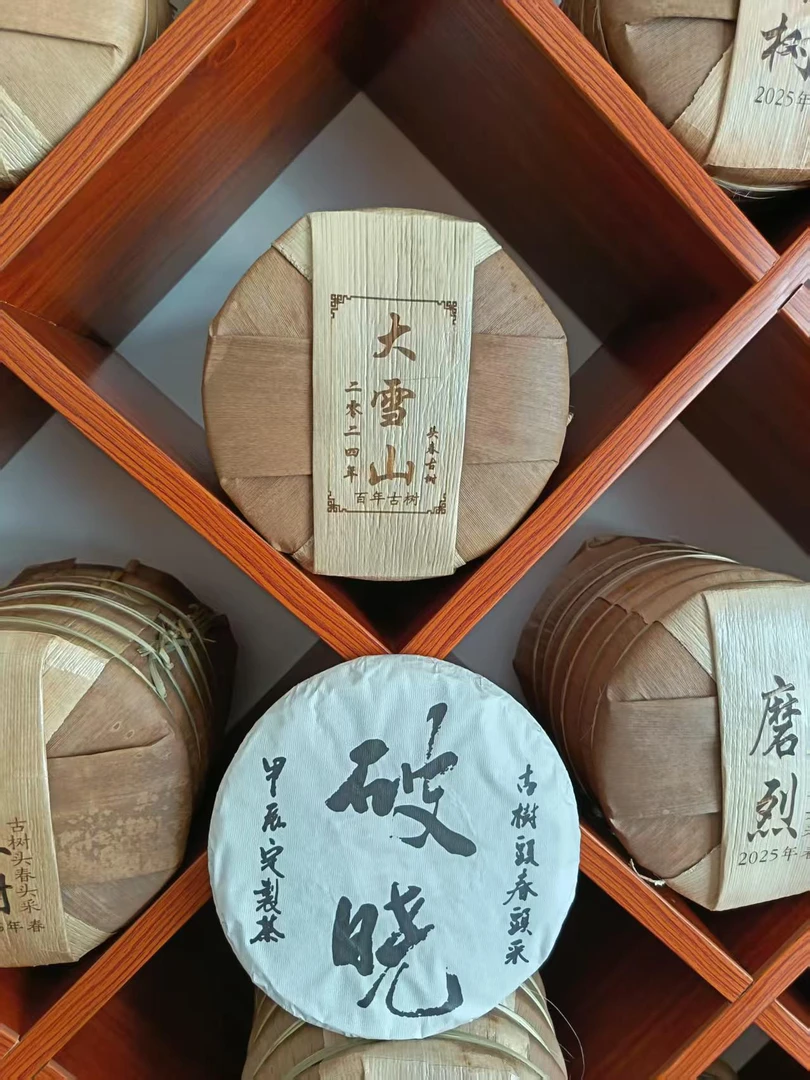 树
2025年
大雪山
二零二四年
头春古树
百年古树
古樹頭春頭采
破晓
甲辰定製茶
磨烈
2025年春
古树头春头采
年春